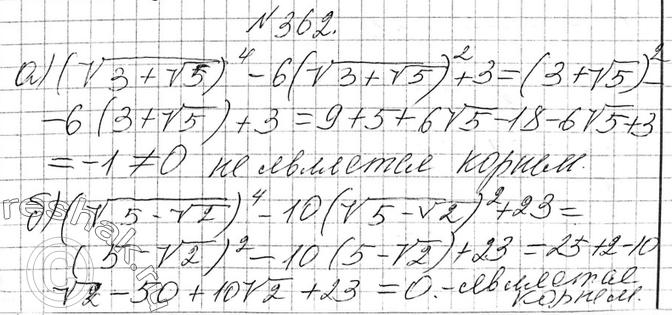 №362.
а) (√(3+√5))⁴ - 6(√(3+√5))² + 3 = (3+√5)² -
-6(3+√5)+3 = 9+5+6√5-18-6√5+3
= -1 ≠ 0 не является корнем.
б) (√(5-√2))⁴ - 10(√(5-√2))² + 23 =
(5-√2)² - 10(5-√2) + 23 = 25+2-10
√2-50+10√2+23=0. - является
корнем.
reshak.ru